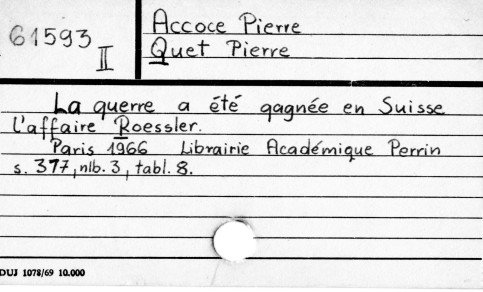 61593
II
Accoce Pierre
Quet Pierre
La guerre a été gagnée en Suisse
l'affaire Roessler.
Paris 1966 Librairie Académique Perrin
s. 377, nlb. 3, tabl. 8.
DUJ 1078/69 10.000